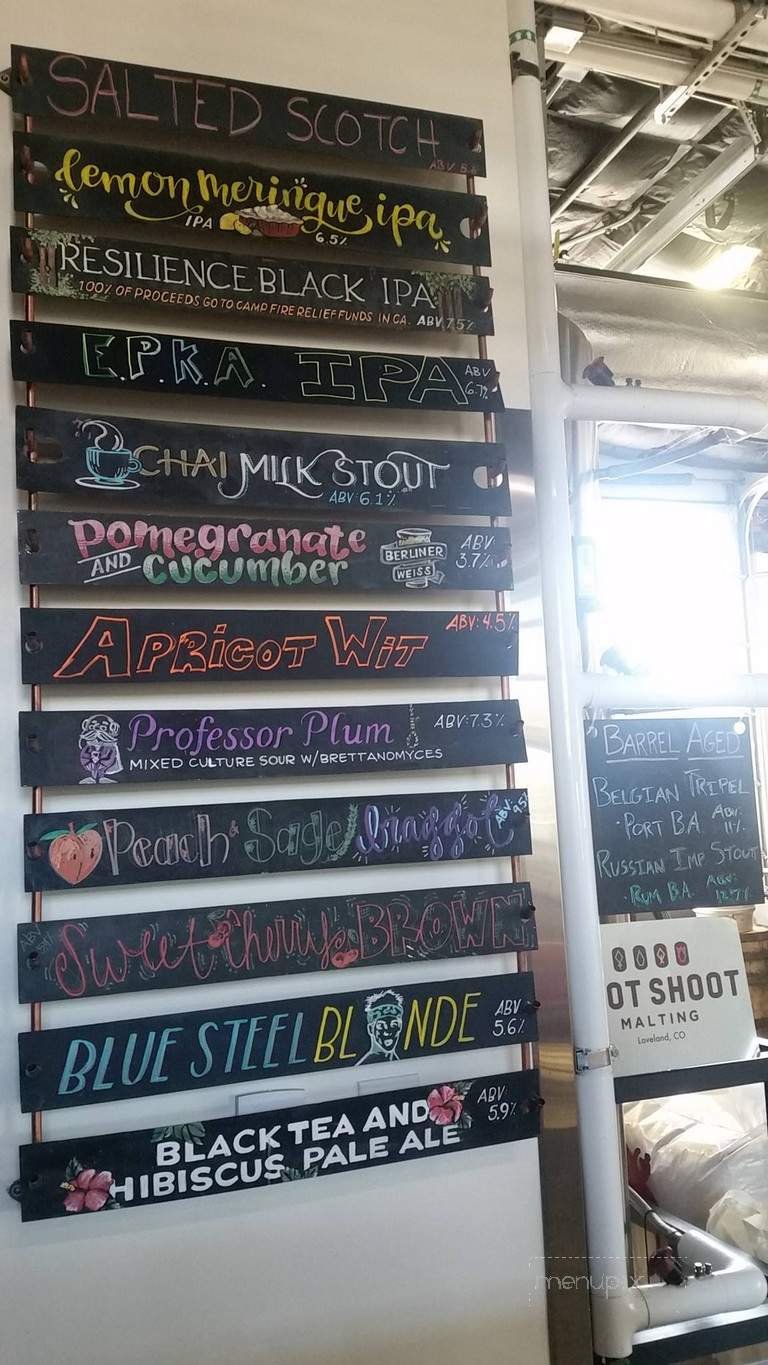 SALTED SCOTCH
ABV 5
lemon meringue ipa
IPA
6.5%
RESILIENCE BLACK IPA
100% OF PROCEEDS GO TO CAMP FIRE RELIEF FUNDS IN CA. ABV 7.5%
E.P.K.A. IPA
ABV
6.7%
CHAI MILK STOUT
ABV: 6.1%
Pomegranate
AND cucumber
BERLINER
WEISS
ABV:
3.7%
APRICOT WIT
ABV: 4.5%
Professor Plum
ABV: 7.3%
MIXED CULTURE SOUR W/BRETTANOMYCES
Peach & Sage braggot
ABV
9.5%
Sweet Cherry BROWN
ABV
BLUE STEEL BL NDE
ABV
5.6%
BLACK TEA AND
HIBISCUS PALE ALE
ABV:
5.9%
BARREL AGED
BELGIAN TRIPEL
· PORT B.A. ABV:
11%
RUSSIAN IMP STOUT
· RUM B.A. ABV:
12.7%
OT SHOOT
MALTING
Loveland, CO
menupix